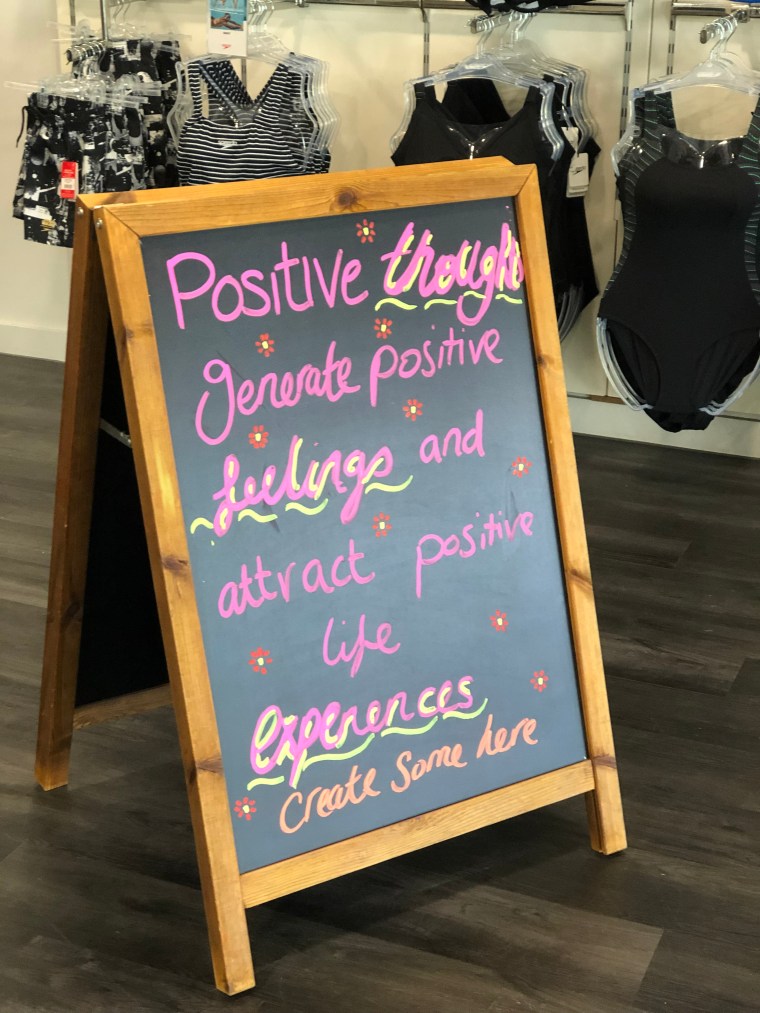 Positive thoughts
Generate positive
feelings and
attract positive
life
experences
Create some here